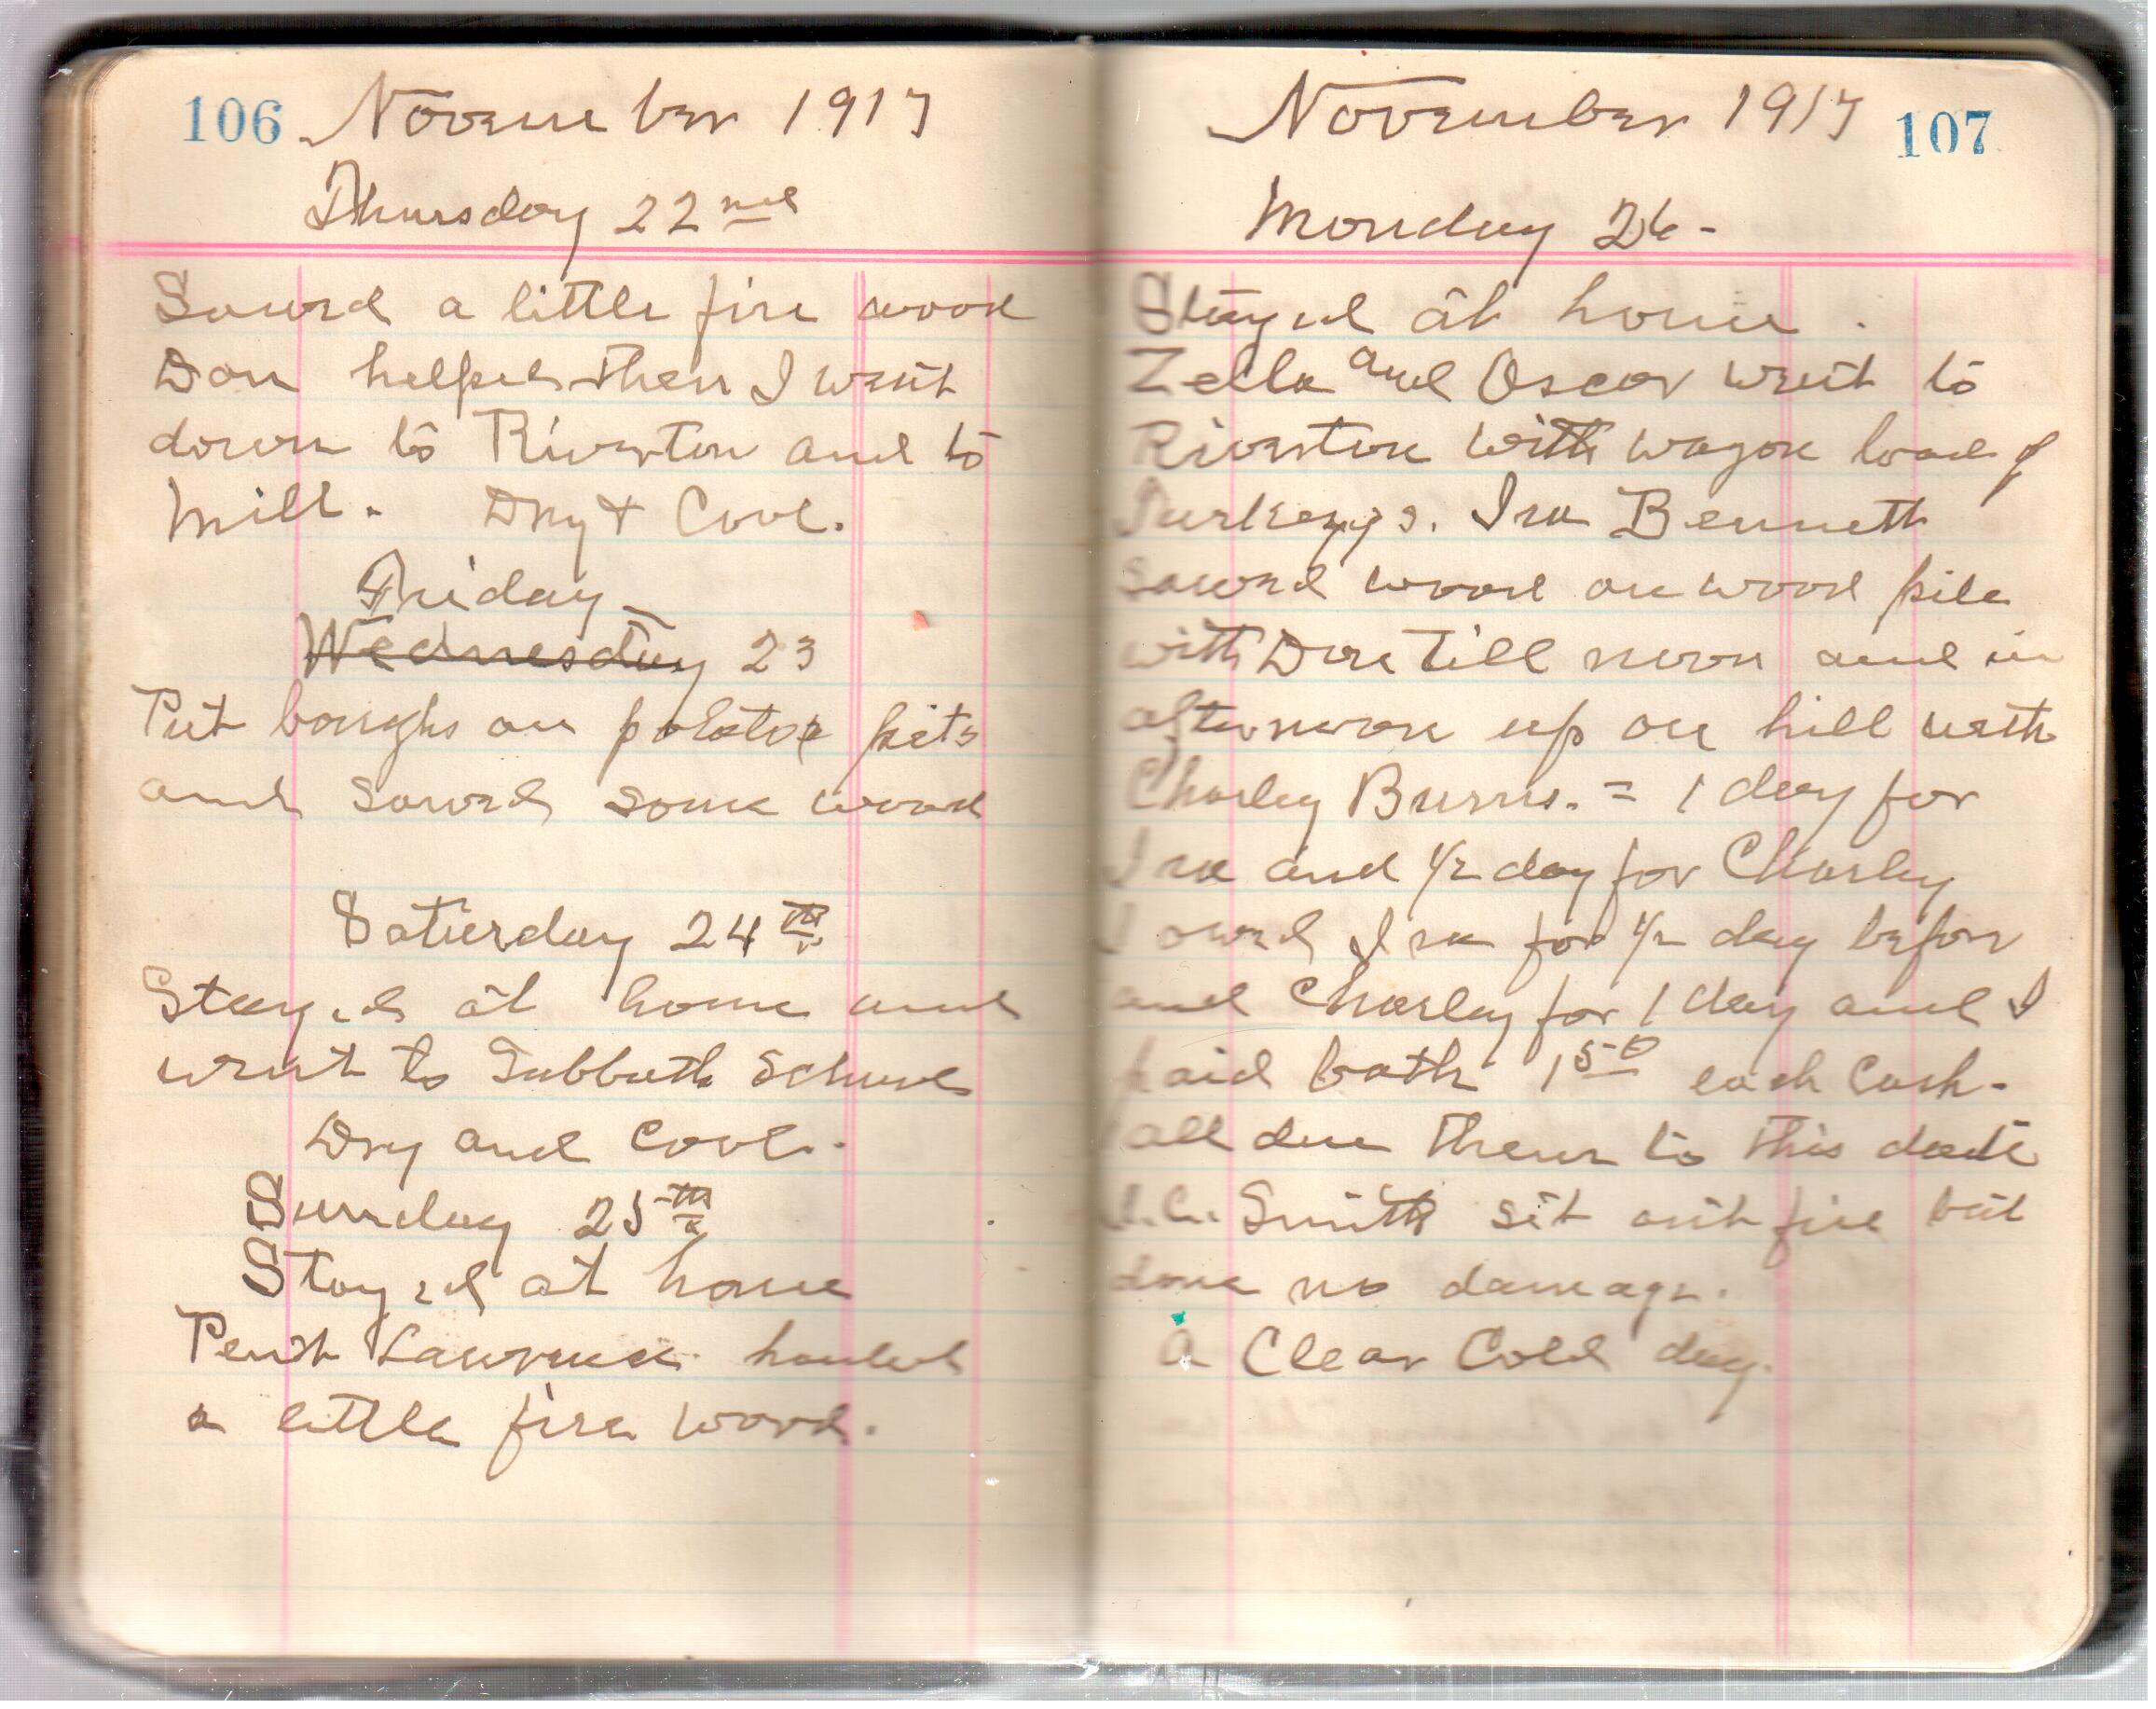 106 November 1917
Thursday 22nd
Sawed a little fire wood
Don helped then I went
down to Riverton and to
Mill. Dry & Cool.
Friday
Wednesday 23
Put boughs on potatoe pits
and sawed some wood
Saturday 24th
Stayed at home and
went to Sabbath School
Dry and Cool.
Sunday 25th
Stayed at home
Lawrence hauled
a little fire wood.
November 1917 107
Monday 26-
Stayed at home.
Zella and Oscar went to
Riverton with wagon load of
Turkeyys. Ira Bennett
sawed wood on wood pile
with Don till noon and in
afternoon up on hill with
Charley Burns. = 1 day for
Ira and 1/2 day for Charley
I owed Ira for 1/2 day before
and Charley for 1 day and I
paid both 1 50 each Cash-
all due them to this date
Smith set out fire but
done no damage.
A Clear Cold day.